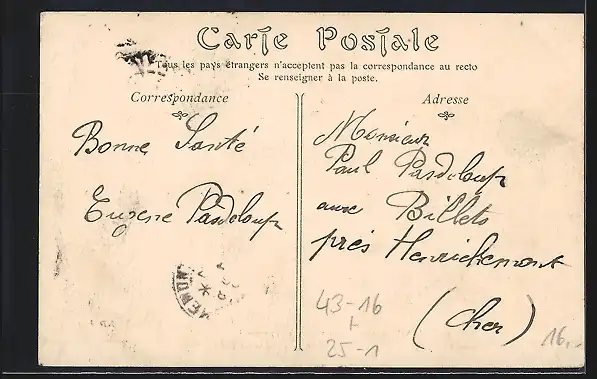 Carte Postale
Tous les pays étrangers n'acceptent pas la correspondance au recto
Se renseigner à la poste.
Correspondance
Adresse
Bonne Santé
Eugene Pasdeloup
Monsieur
Paul Pasdeloup
aux Billets
près Henrichemont
(Cher)
43-16
+
25-1
16.-